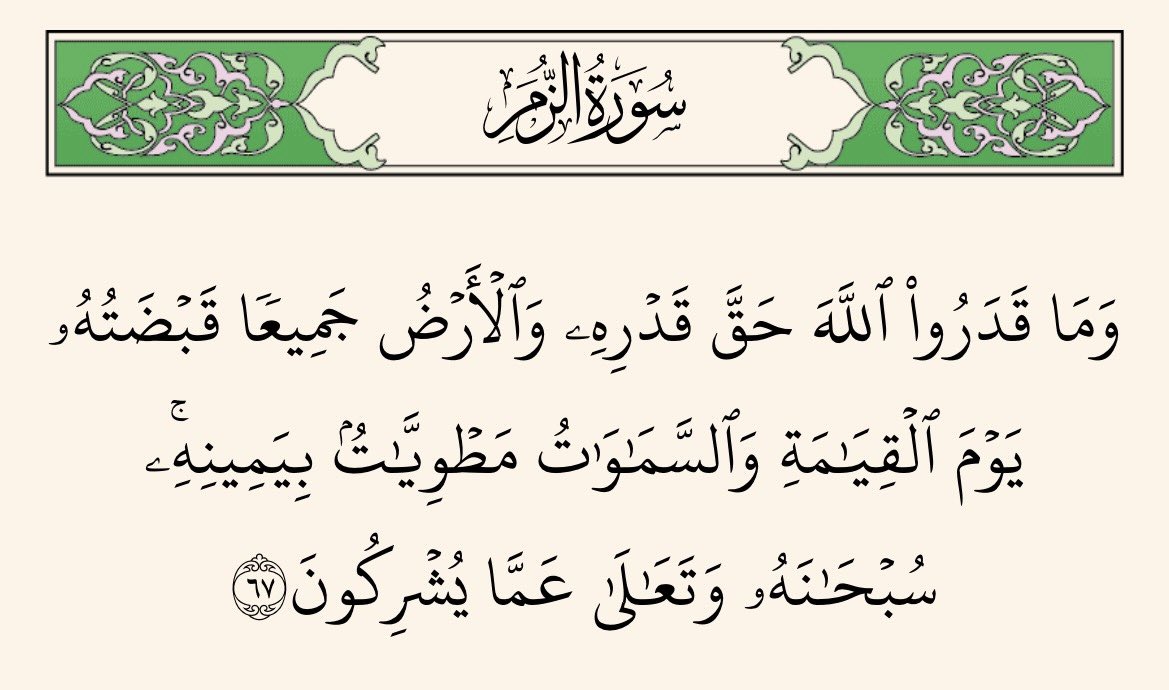 سُورَةُ الزُّمَرِ
وَمَا قَدَرُوا۟ ٱللَّهَ حَقَّ قَدۡرِهِۦ وَٱلۡأَرۡضُ جَمِيعٗا قَبۡضَتُهُۥ
يَوۡمَ ٱلۡقِيَٰمَةِ وَٱلسَّمَٰوَٰتُ مَطۡوِيَّٰتُۢ بِيَمِينِهِۦۚ
سُبۡحَٰنَهُۥ وَتَعَٰلَىٰ عَمَّا يُشۡرِكُونَ ٦٧